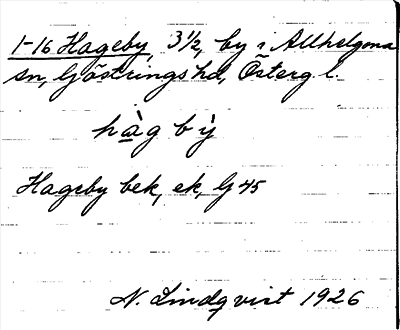 1-16 Hageby, 3 1/2, by i Allhelgona
sn, Göstrings hd, Österg l.
hàg bỳ
Hageby bek, ek, G 45
N. Lindqvist 1926